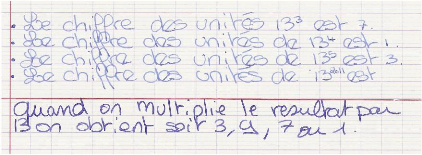 • Le chiffre des unités 13³ est 7.
• Le chiffre des unités de 13⁴ est 1.
• Le chiffre des unités de 13⁵ est 3.
• Le chiffre des unités de est
Quand on multiplie le resultat par
13 on obtient soit 3, 9, 7 ou 1.